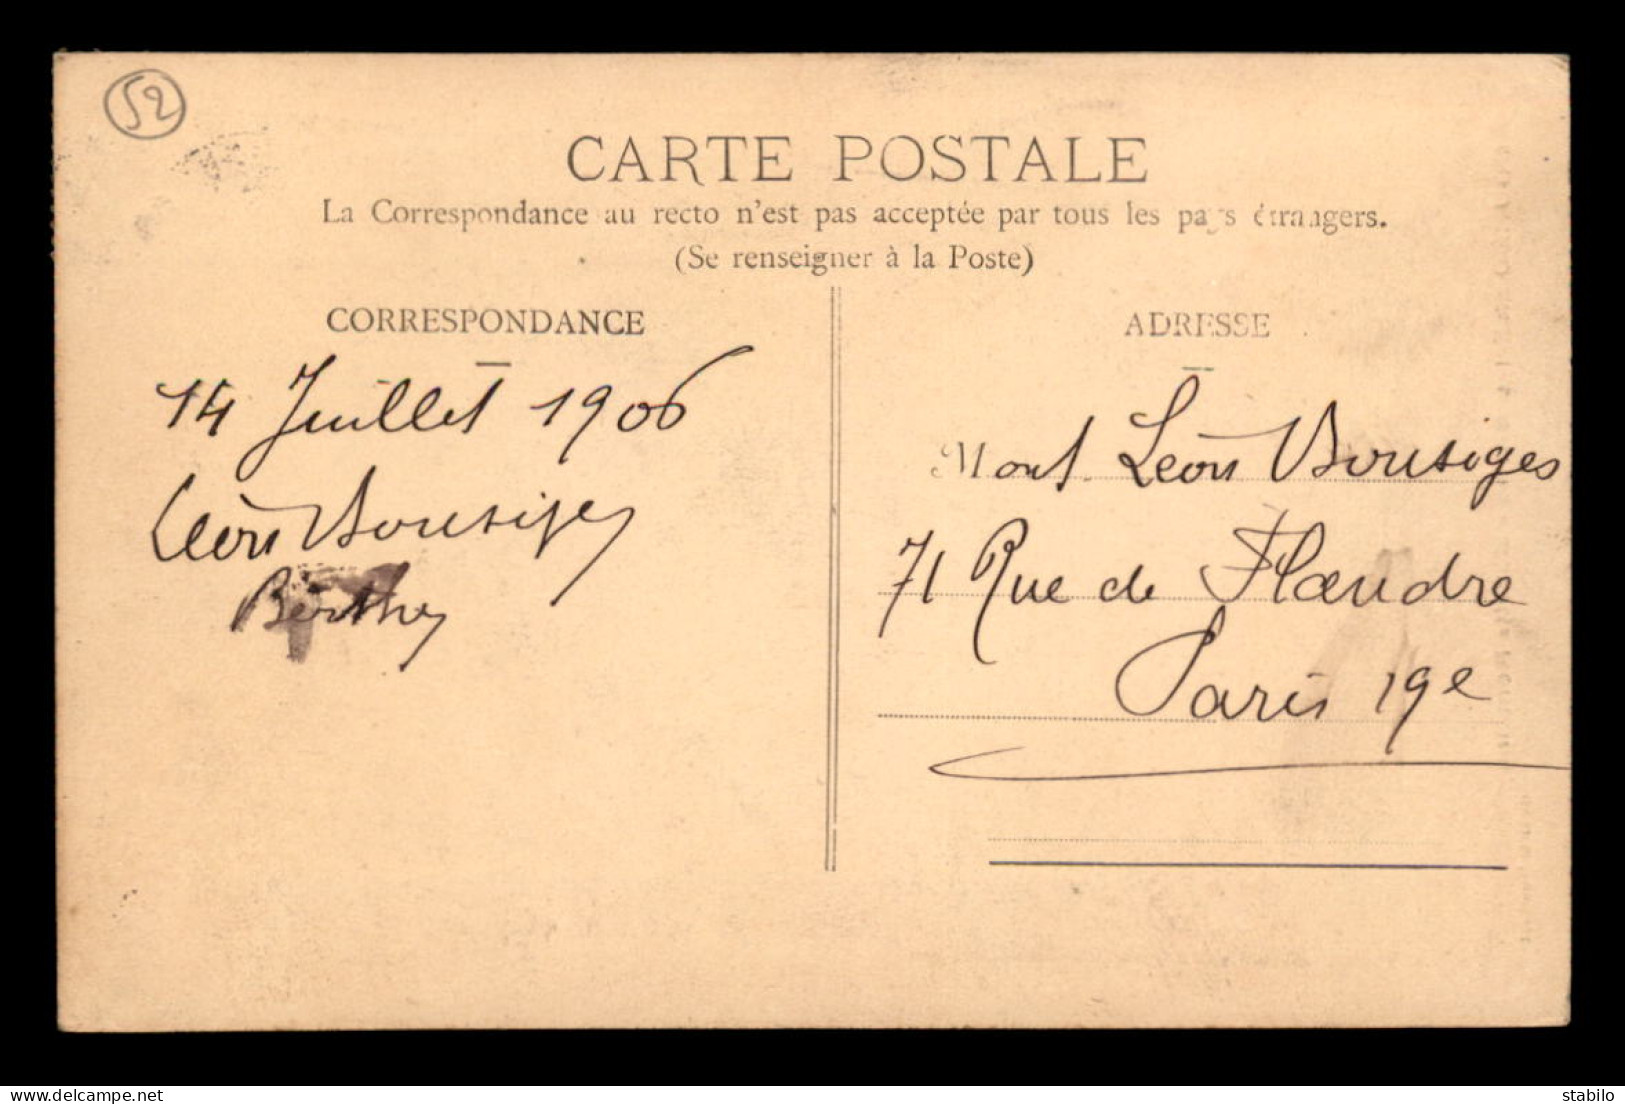 52
CARTE POSTALE
La Correspondance au recto n'est pas acceptée par tous les pays étrangers.
(Se renseigner à la Poste)
CORRESPONDANCE
14 Juillet 1906
Léon Bousiges
Berthe
ADRESSE
Mont Léon Bousiges
71 Rue de Flandre
Paris 19e
delcampe.net
stabilo